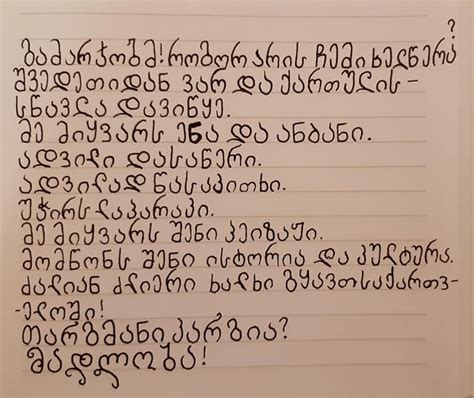 ?
გამარჯობა! როგორ არის ჩემი ხელწერა
შვედეთიდან ვარ და ქართულის -
სწავლა დავიწყე.
მე მიყვარს ენა და ანბანი.
ადვილი დასაწერი.
ადვილად წასაკითხი.
უჭირს ლაპარაკი.
მე მიყვარს შენი პეიზაჟი.
მომწონს შენი ისტორია და კულტურა.
ძალიან ძლიერი ხალხი გყავთ საქართვ-
-ელოში!
თარგმანი კარგია?
მადლობა!